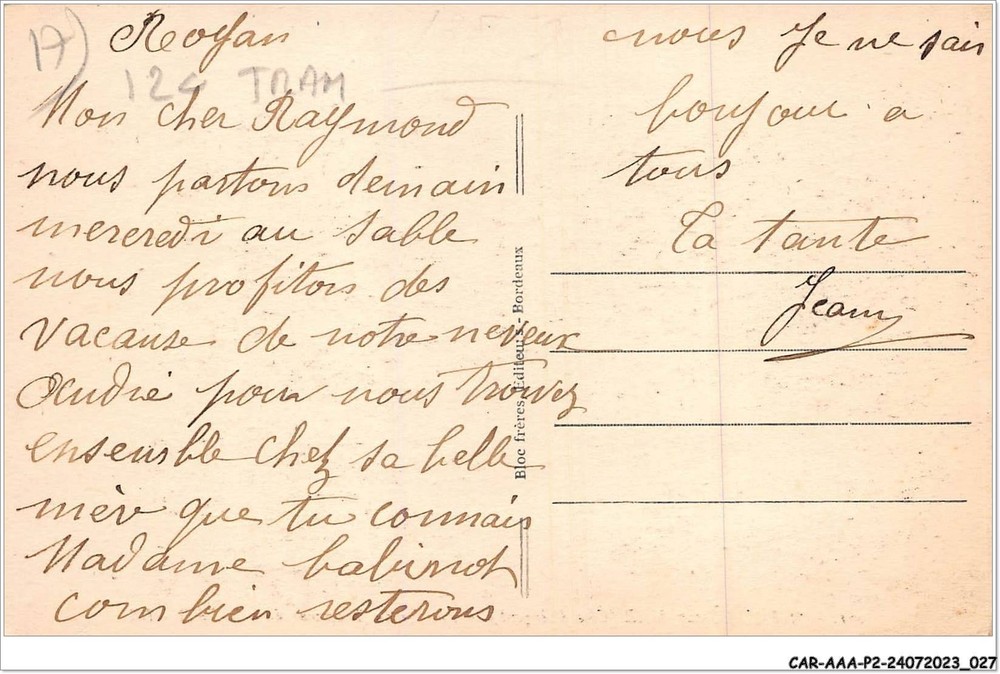 17)
Royan
12€ TRAM
Mon cher Raymond
nous partons demain
mercredi au Sable
nous profitons des
vacanse de notre neveux
pour nous trouvez
ensemble chez sa belle
mère que tu connais
Madame babinot
combien resterons
nous Je ne sais
bonjour a
tous
Ta tante
Jeanne
Bloc frères, Editeurs - Bordeaux
CAR-AAA-P2-24072023_027